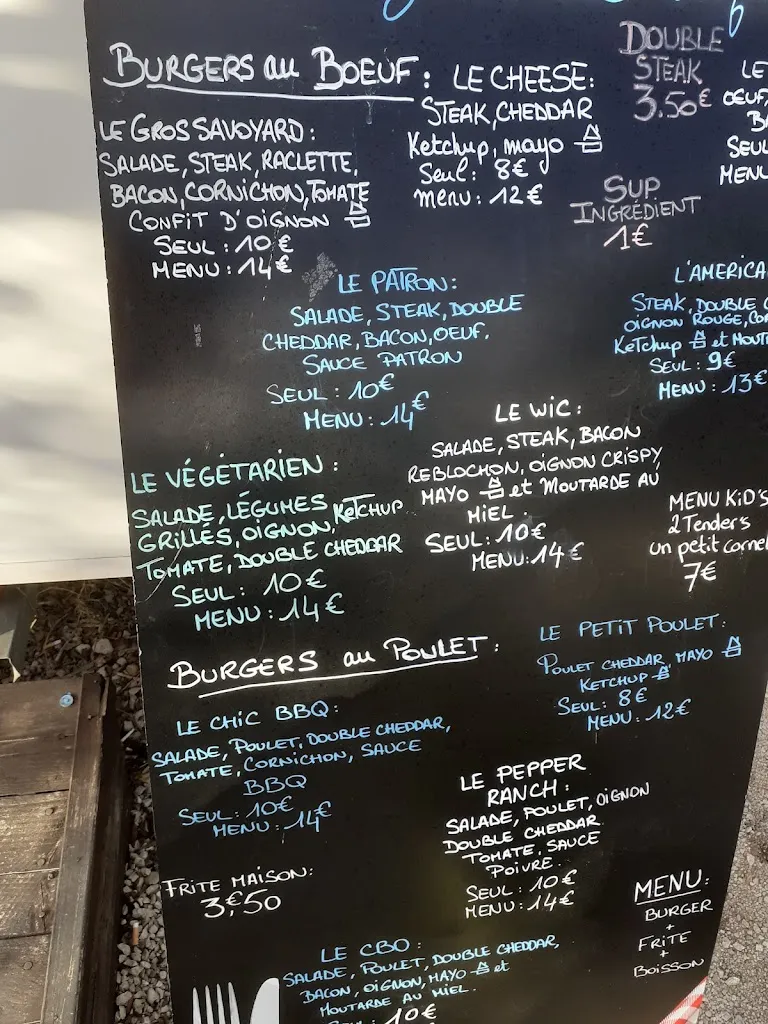 BURGERS au BOEUF :
LE GROS SAVOYARD :
SALADE, STEAK, RACLETTE,
BACON, CORNICHON, TOMATE
CONFIT D'OIGNON
SEUL : 10€
MENU : 14€
LE CHEESE :
STEAK, CHEDDAR
Ketchup, mayo
Seul : 8€
menu : 12€
DOUBLE
STEAK
3.50€
SUP
INGRÉDIENT
1€
LE
OEUF,
SEUL
MENU
LE PATRON :
SALADE, STEAK, DOUBLE
CHEDDAR, BACON, OEUF,
SAUCE PATRON
SEUL : 10€
MENU : 14€
L'AMERICA
STEAK, DOUBLE C
OIGNON ROUGE, CO
KETCHUP et MOUT
SEUL : 9€
MENU : 13€
LE WIC :
SALADE, STEAK, BACON
REBLOCHON, OIGNON CRISPY,
MAYO et MOUTARDE AU
MIEL.
SEUL : 10€
MENU : 14€
LE VÉGÉTARIEN :
SALADE, LÉGUMES
GRILLÉS, OIGNON, KETCHUP
TOMATE, DOUBLE CHEDDAR
SEUL : 10€
MENU : 14€
MENU KID'S
2 Tenders
un petit cornet
7€
BURGERS au POULET :
LE PETIT POULET :
POULET CHEDDAR, MAYO
KETCHUP
SEUL : 8€
MENU : 12€
LE CHIC BBQ :
SALADE, POULET, DOUBLE CHEDDAR,
TOMATE, CORNICHON, SAUCE
BBQ
SEUL : 10€
MENU : 14€
LE PEPPER
RANCH :
SALADE, POULET, OIGNON
DOUBLE CHEDDAR
TOMATE, SAUCE
POIVRE.
SEUL : 10€
MENU : 14€
FRITE MAISON :
3€50
MENU :
BURGER
+
FRITE
+
BOISSON
LE CBO :
SALADE, POULET, DOUBLE CHEDDAR,
BACON, OIGNON, MAYO et
MOUTARDE AU MIEL.
SEUL : 10€